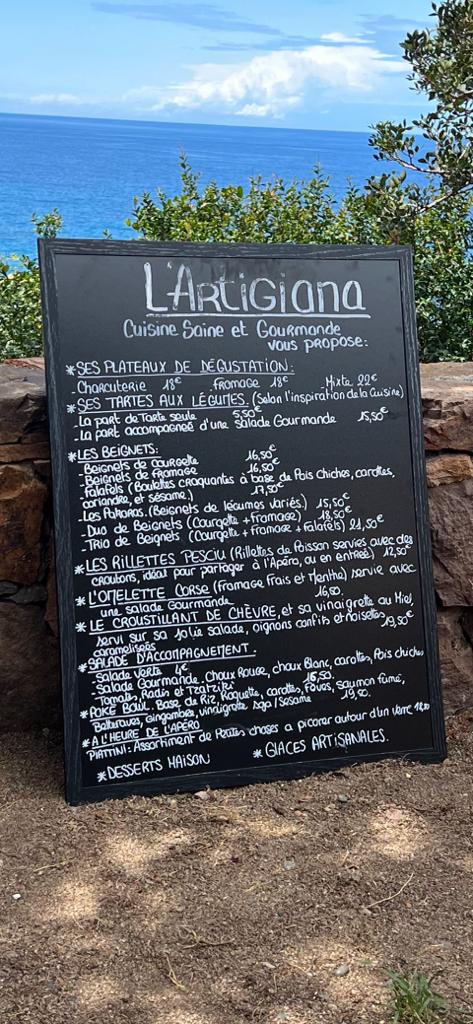 L'ARTIGIANA
Cuisine Saine et Gourmande
vous propose:
* SES PLATEAUX DE DÉGUSTATION:
- Charcuterie 18€ fromage 18€ Mixte 22€
* SES TARTES AUX LÉGUMES. (Selon l'inspiration de la Cuisine)
- La part de Tarte seule 5,50€
- La part accompagnée d'une salade Gourmande 15,50€
* LES BEIGNETS:
- Beignets de courgette 16,50€
- Beignets de fromage 16,50€
- falafels (Boulettes craquantes à base de Pois chiches, carottes,
coriandre, et sésame.) 17,50€
- Les Pakoras. (Beignets de légumes variés.) 15,50€
- Duo de Beignets (Courgette + fromage) 18,50€
- Trio de Beignets (Courgette + fromage + falafels) 21,50€
* LES RILLETTES PESCIU (Rillettes de Poisson servies avec des
croutons, idéal pour partager à l'Apéro, ou en entrée) 12,50€
* L'OMELETTE CORSE (fromage frais et Menthe) servie avec
une salade Gourmande 16,50.
* LE CROUSTILLANT DE CHÈVRE, et sa vinaigrette au Miel,
servi sur sa jolie salade, oignons confits et noisettes
caramélisées 19,50€
* SALADE D'ACCOMPAGNEMENT.
- Salade verte 4€
- Salade Gourmande. Chou Rouge, chou Blanc, carottes, Pois chiches
Tomates, Radis et Tzatziki 16,50.
* POKE BOWL. Base de Riz Roquette, carottes, Fèves, saumon fumé,
Betteraves, Gingembre, vinaigrette soja/sésame 19,50.
* A L'HEURE DE L'APÉRO
PIATTINI: Assortiment de Petites choses a picorer autour d'un verre
* DESSERTS MAISON * GLACES ARTISANALES.